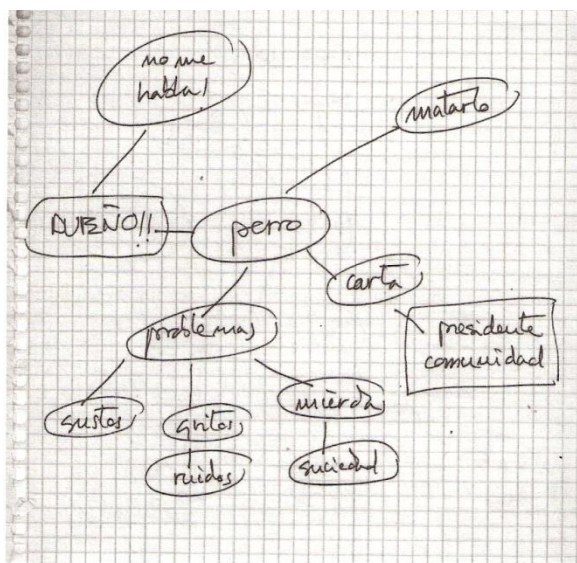 no me
habla!
matarlo
DUEÑO!!
perro
carta
presidente
comunidad
problemas
mierda
sustos
gritos
ruidos
suciedad